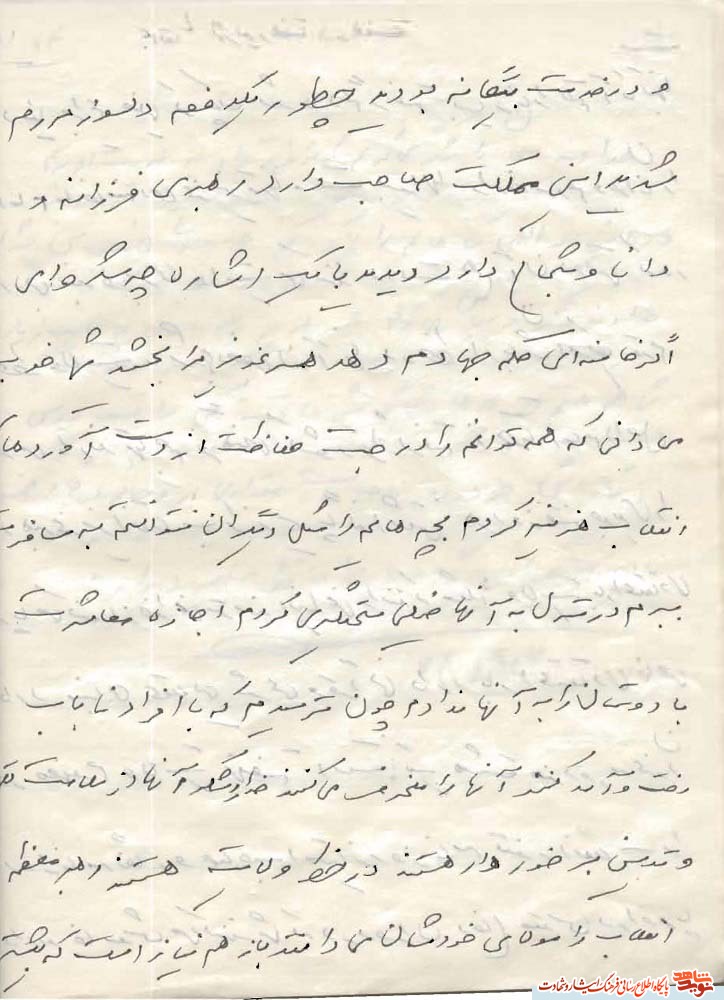 و در خدمت بیگانه بودید چطور یکدفعه دلسوز مردم
شدید این مملکت صاحب دارد رهبری فرزانه و
دانا و شجاع دارد دیدید با یک اشاره چه شد وای
اگر خامنه‌ای حکم جهادم دهد همسر عزیز مرا ببخشید شما خوب
می دانی که همه توانم را در جهت حفاظت از دست آوردهای
انقلاب هزینه کردم بچه هایم را مثل دیگران نتوانستم به مسافرت
ببرم در منزل به آنها خیلی سختگیری کردم اجازه معاشرت
با دوستان را به آنها ندادم چون می‌ترسیدم که با افراد ناباب
رفت و آمد کنند آنها را منحرف می‌کنند خدا را شکر آنها از سلامت
و تدین برخوردار هستند در خط ولایت هستند رهبر معظم
انقلاب را مولای خودشان می دانند باز هم نیاز است که بیشتر
نوید شاهد
پایگاه اطلاع رسانی فرهنگ ایثار و شهادت